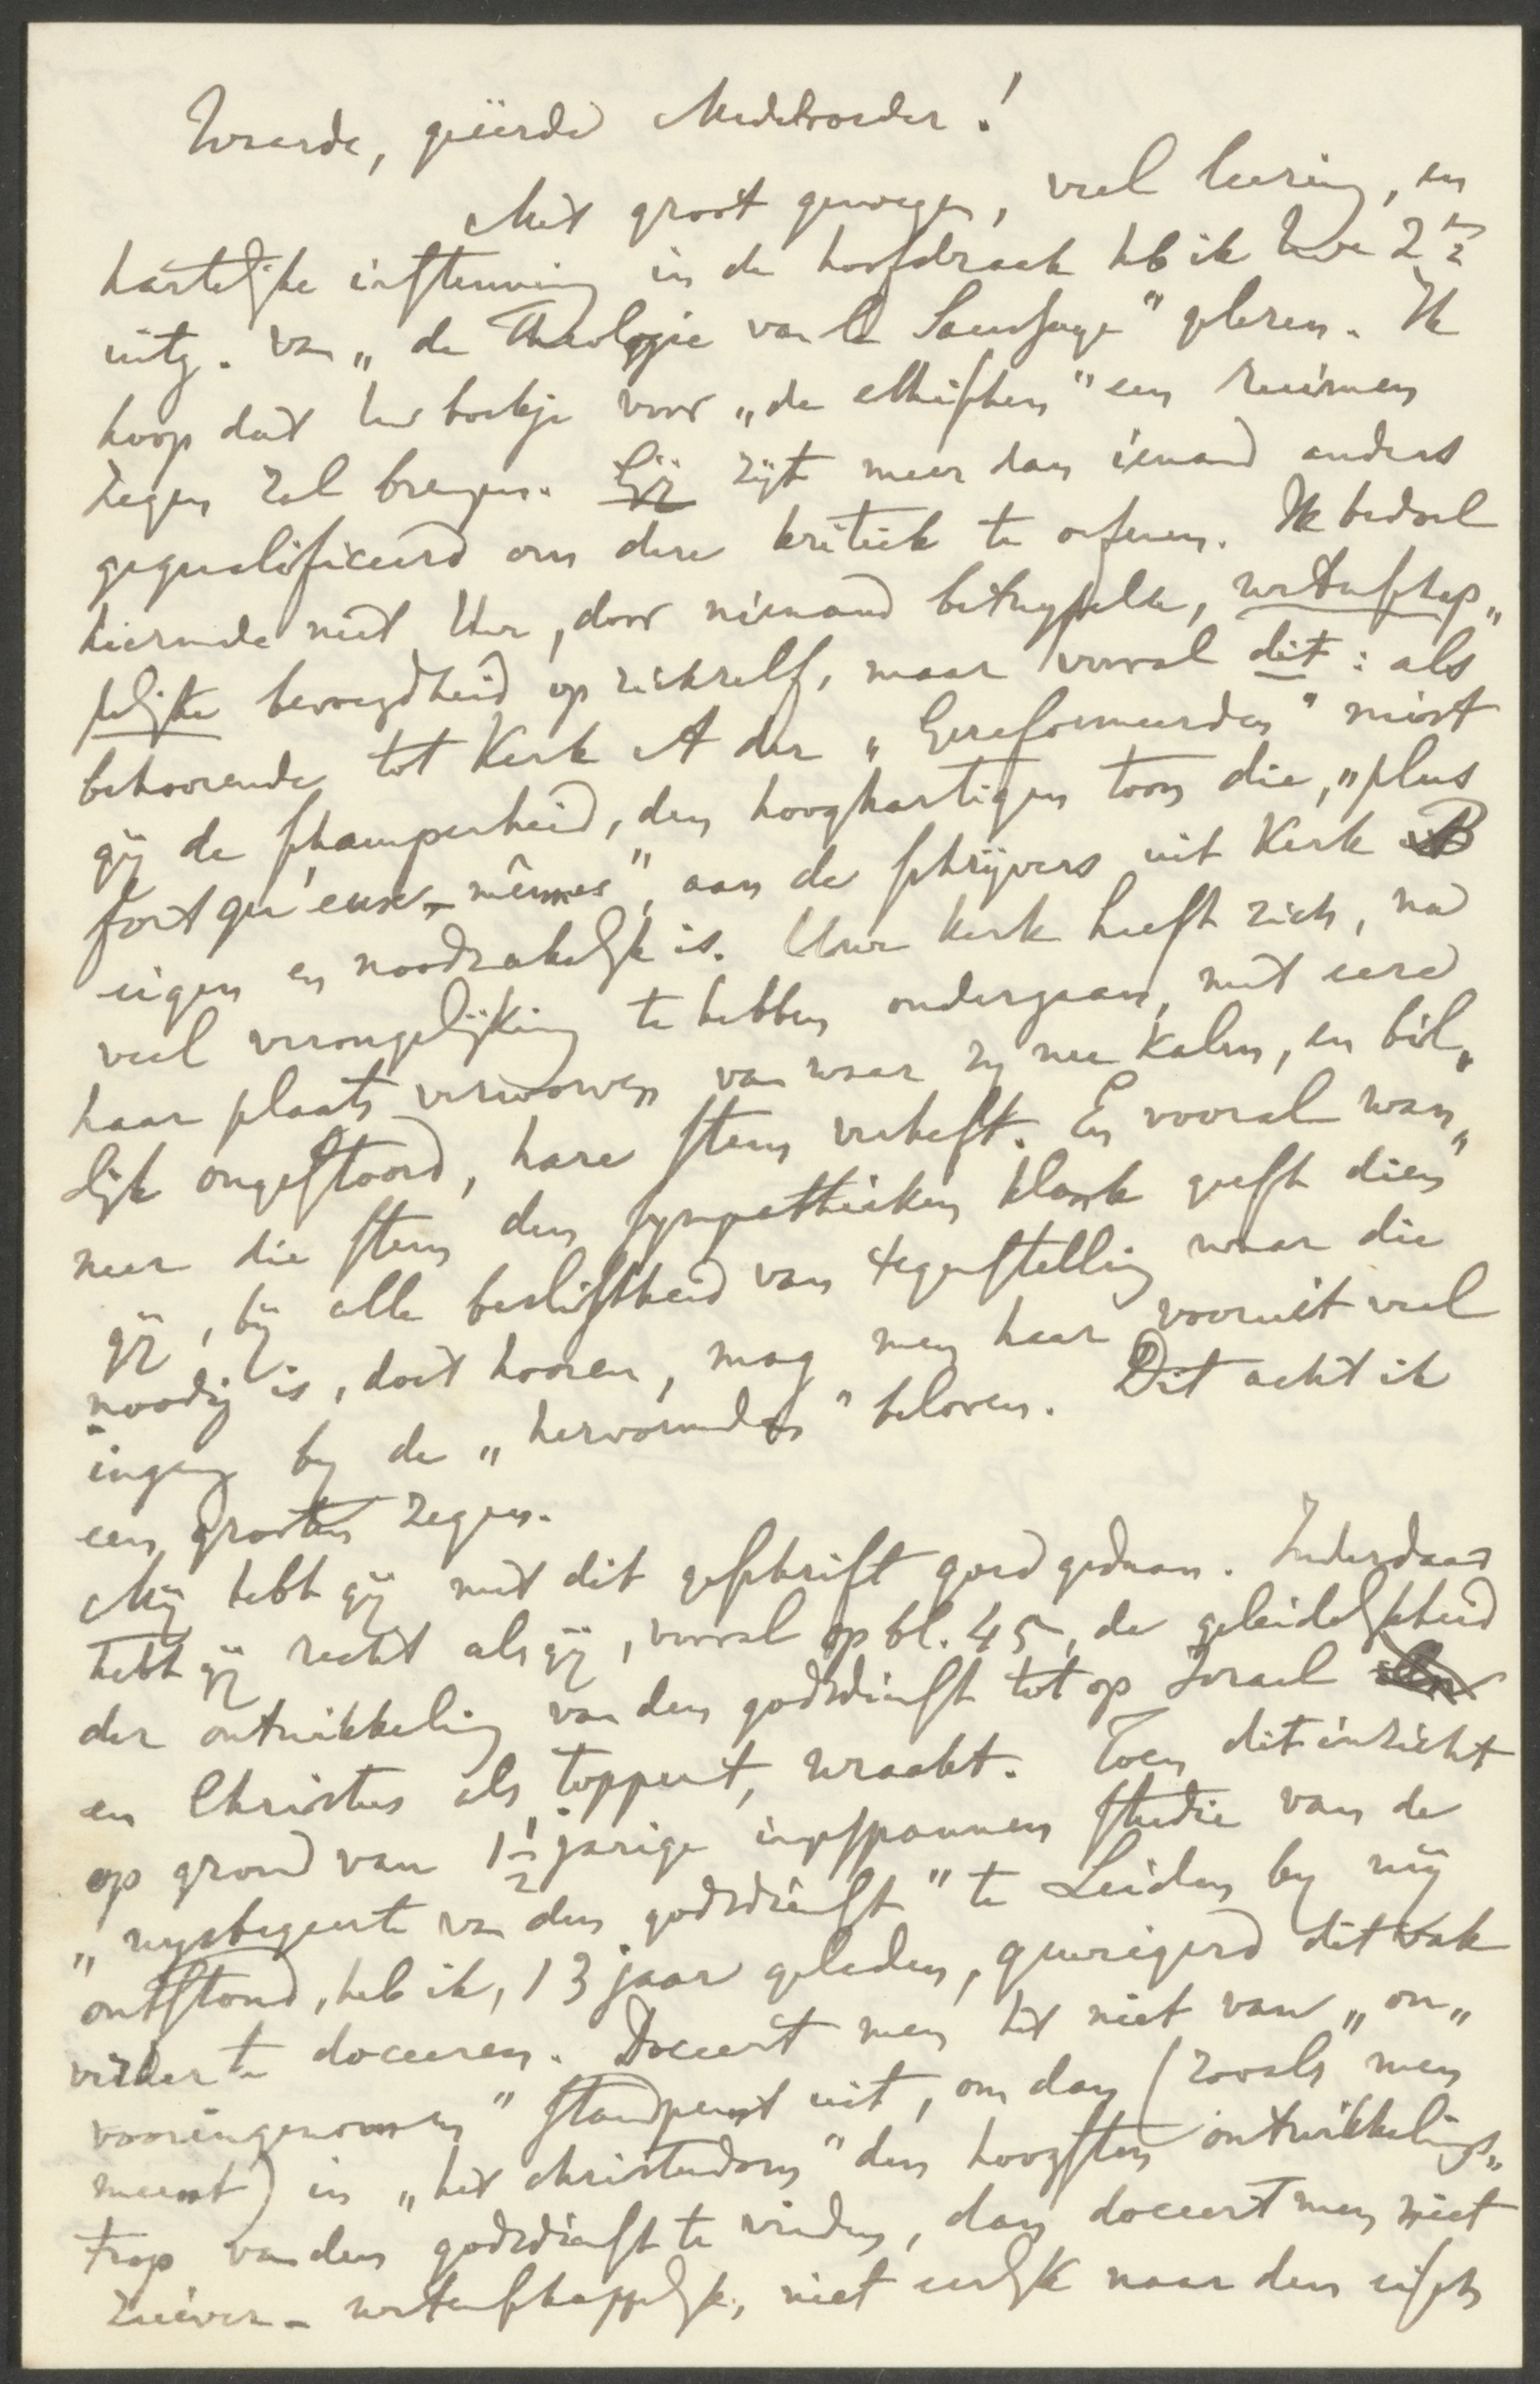 Waarde, geëerde Medebroeder!
Met groot genoegen, veel leering, en
hartelijke instemming in de hoofdzaak heb ik Uwe 2de
uitg. van „de Theologie van de la Saussaye" gelezen. Ik
hoop dat Uw boekje voor „de ethischen" een ruimen
zegen zal brengen. Gij zijt meer dan iemand anders
gequalificeerd om deze kritiek te oefenen. Ik bedoel
hiermede niet Uwe, door niemand betwyfelde, wetenschap„
pelijke bevoegdheid op zichzelf, maar vooral dit: als
behoorende tot Kerk A der „Gereformeerden" mist
gij de schamperheid, den hooghartigen toon die, „plus
fort qu'eux-mêmes", aan de schrijvers uit Kerk B
eigen en noodzakelijk is. Uwe kerk heeft zich, na
veel verongelijking te hebben ondergaan, met eere
haar plaats verworven van waar zy nu kalm, en bil„
lijk ongestoord, hare stem verheft. En vooral wan„
neer die stem den sympathieken klank geeft dien
gij, bij alle beslistheid van tegenstelling waar die
noodig is, doet hooren, mag men haar vooruit veel
ingang by de „hervormden" beloven. Dit acht ik
een grooten zegen.
Mij hebt gij met dit geschrift goed gedaan. Inderdaad
hebt gij recht als gij, vooral op bl. 45, de geleidelijkheid
der ontwikkeling van den godsdienst tot op Israel
en Christus als toppunt, wraakt. Toen dit inzicht
op grond van 1½ jarige ingespannen studie van de
„wysbegeerte van den godsdienst" te Leiden by mij
ontstond, heb ik, 13 jaar geleden, geweigerd dit vak
verder te doceeren. Doceert men het niet van „on„
vooringenomen" standpunt uit, om dan (zooals men
meent) in „het christendom" den hoogsten ontwikkelings„
trap van den godsdienst te vinden, dan doceert men niet
zuiver-wetenschappelijk, niet eerlijk naar den eisch